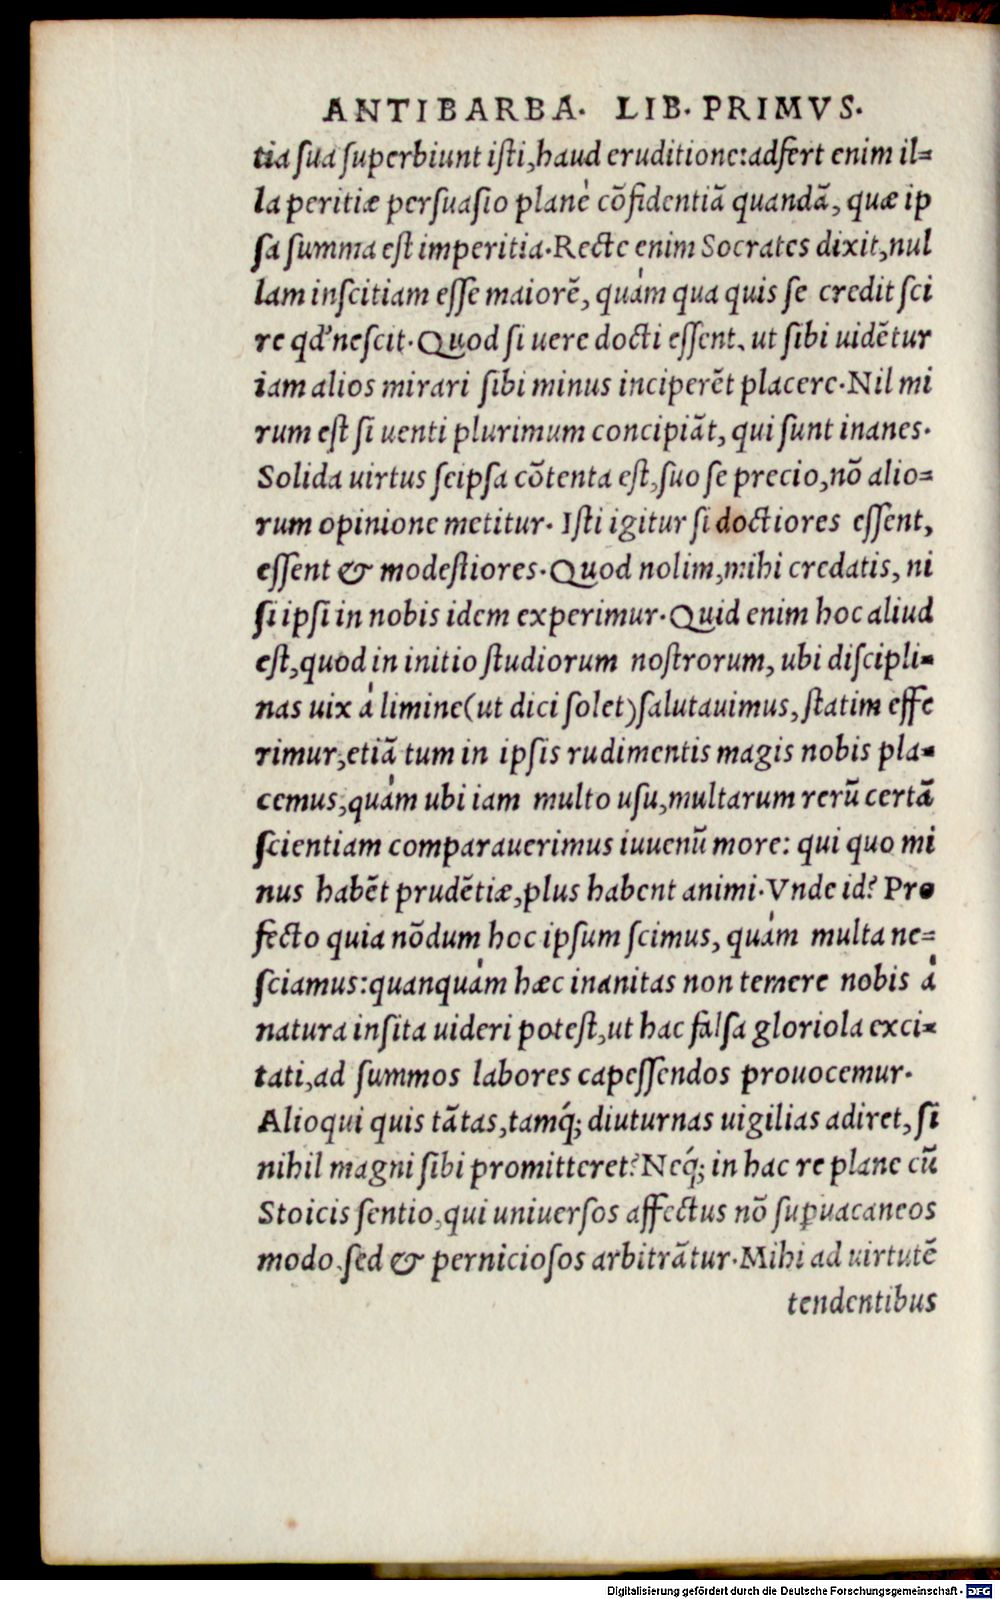 ANTIBARBA. LIB. PRIMVS.
tia ſua ſuperbiunt iſti, haud eruditione: adfert enim il=
la peritiæ perſuaſio planè cõfidentiã quandã, quæ ip
ſa ſumma eſt imperitia. Recte enim Socrates dixit, nul
lam inſcitiam eſſe maiorẽ, quàm qua quis ſe credit ſci
re qđ neſcit. Quod ſi uere docti eſſent, ut ſibi uidẽtur
iam alios mirari ſibi minus inciperẽt placere. Nil mi
rum eſt ſi uenti plurimum concipiãt, qui ſunt inanes.
Solida uirtus ſeipſa cõtenta eſt, ſuo ſe precio, nõ alio=
rum opinione metitur. Iſti igitur ſi doctiores eſſent,
eſſent & modeſtiores. Quod nolim, mihi credatis, ni
ſi ipſi in nobis idem experimur. Quid enim hoc aliud
eſt, quod in initio ſtudiorum noſtrorum, ubi diſcipli=
nas uix à limine (ut dici ſolet) ſalutauimus, ſtatim effe
rimur, etiã tum in ipſis rudimentis magis nobis pla=
cemus, quàm ubi iam multo uſu, multarum rerũ certã
ſcientiam comparauerimus iuuenũ more: qui quo mi
nus habẽt prudẽtiæ, plus habent animi. Vnde id? Pro
fecto quia nõdum hoc ipſum ſcimus, quàm multa ne=
ſciamus: quanquàm hæc inanitas non temere nobis à
natura inſita uideri poteſt, ut hac falſa gloriola exci=
tati, ad ſummos labores capeſſendos prouocemur.
Alioqui quis tãtas, tamq́; diuturnas uigilias adiret, ſi
nihil magni ſibi promitteret? Neq́; in hac re plane cũ
Stoicis ſentio, qui uniuerſos affectus nõ ſuꝑuacaneos
modo, ſed & pernicioſos arbitrãtur. Mihi ad uirtutẽ
tendentibus
Digitalisierung gefördert durch die Deutsche Forschungsgemeinschaft - DFG